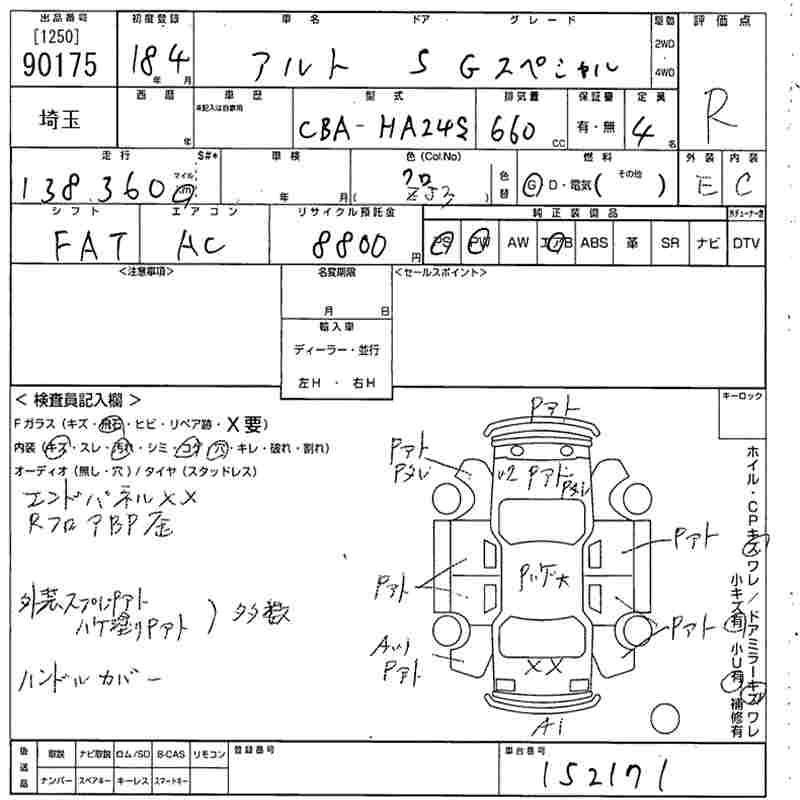 出品番号 初度登録 車名 ドア グレード 駆動 評価点
[1250]
90175 18年 4月 アルト 5 G スペシャル 2WD ・ 4WD R
埼玉 西暦 年 車歴 型式 排気量 保証書 定員
未記入は自家用
CBA-HA24S 660 CC 有・無 4名
走行 S#* 車検 色(Col.No) 燃料 外装 内装
138,360 マイル km 年 月 クロ ( ZJ3 ) 色替 G D・電気( その他 ) E C
シフト エアコン リサイクル預託金 純正装備品
FAT AC 8800円 PS PW AW エアB ABS 革 SR ナビ DTV
<注意事項> 名変期限 <セールスポイント>
月 日
輸入車
ディーラー・並行
左H ・ 右H
< 検査員記入欄 > キーロック
Fガラス(キズ・飛石・ヒビ・リペア跡・X要)
内装(キズ・スレ・汚れ・シミ・コゲ・穴・キレ・破れ・割れ)
オーディオ(無し・穴)/タイヤ(スタッドレス)
エンドパネルXX
外装スプレーPアト
ハケ塗りPアト ) 多数
ハンドルカバー
Pアト
Pアト
U2 Pアト
Pアト
Pハゲ大
Pアト
Pアト
Pアト
XX
Ai
ホイル・CPキズワレ/ドアミラーキズワレ
小キズ有 小U有 補修有
後送品 取説 ナビ取説 ロム/SD B-CAS リモコン 登録番号 車台番号
ナンバー スペアキー キーレス スマートキー 152171